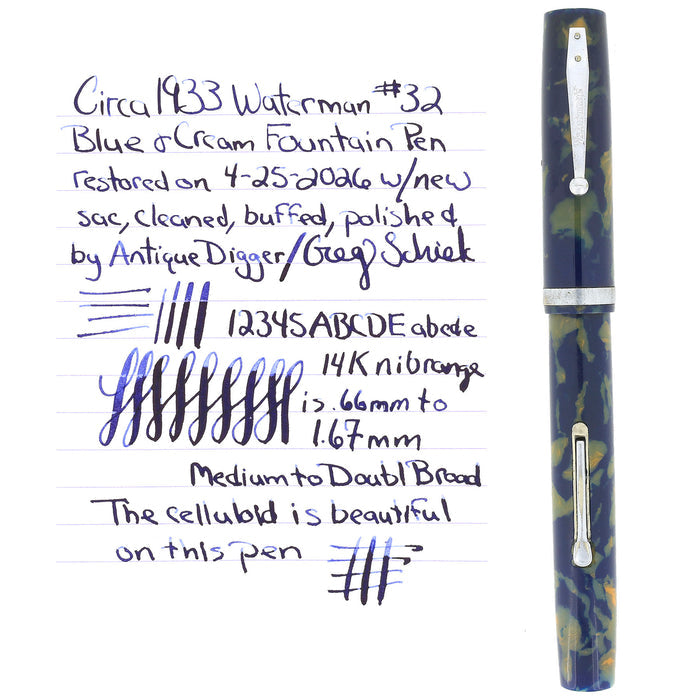 Circa 1933 Waterman #32
Blue & Cream Fountain Pen
restored on 4-25-2026 w/new
sac, cleaned, buffed, polished
by Antique Digger/Greg Schiek
12345ABCDE abcde
14K nib range
is .66mm to
1.67mm
Medium to Doubl Broad
The celluloid is beautiful
on this pen
Waterman's